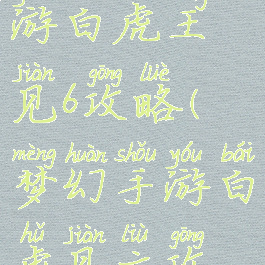 游白虎王
jiàn gōng lüè
见6攻略(
mèng huàn shǒu yóu bái
梦幻手游白
hǔ jiàn liù gōng
虎见六攻